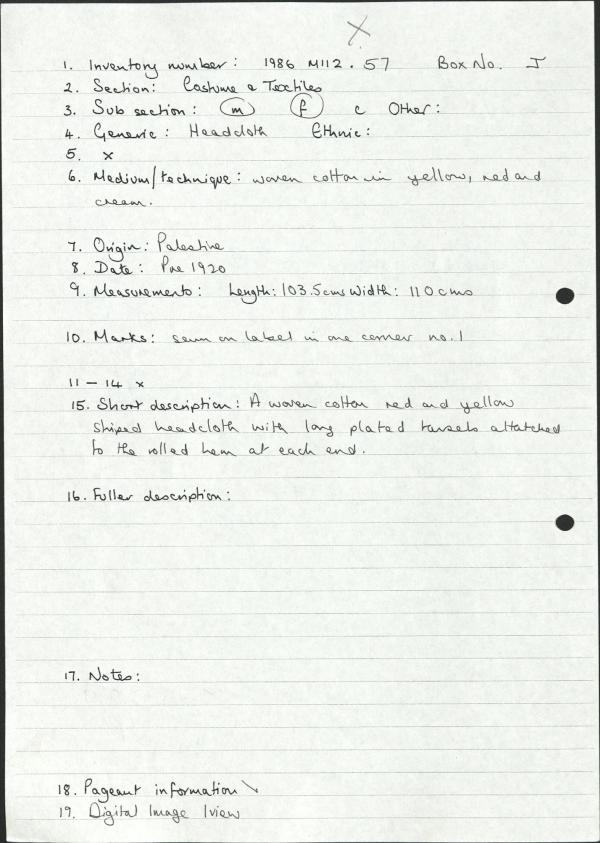 X
1. Inventory number: 1986 M112.57 Box No. J
2. Section: Costume & Textiles
3. Sub section: m f c Other:
4. Generic: Headcloth Ethnic:
5. x
6. Medium/technique: woven cotton in yellow, red and
cream.
7. Origin: Palestine
8. Date: Pre 1920
9. Measurements: Length: 103.5cms Width: 110cms
10. Marks: sewn on label in one corner no. 1
11 – 14 x
15. Short description: A woven cotton red and yellow
striped headcloth with long plated tassels attatched
to the rolled hem at each end.
16. Fuller description:
17. Notes:
18. Pageant information \
19. Digital Image 1view